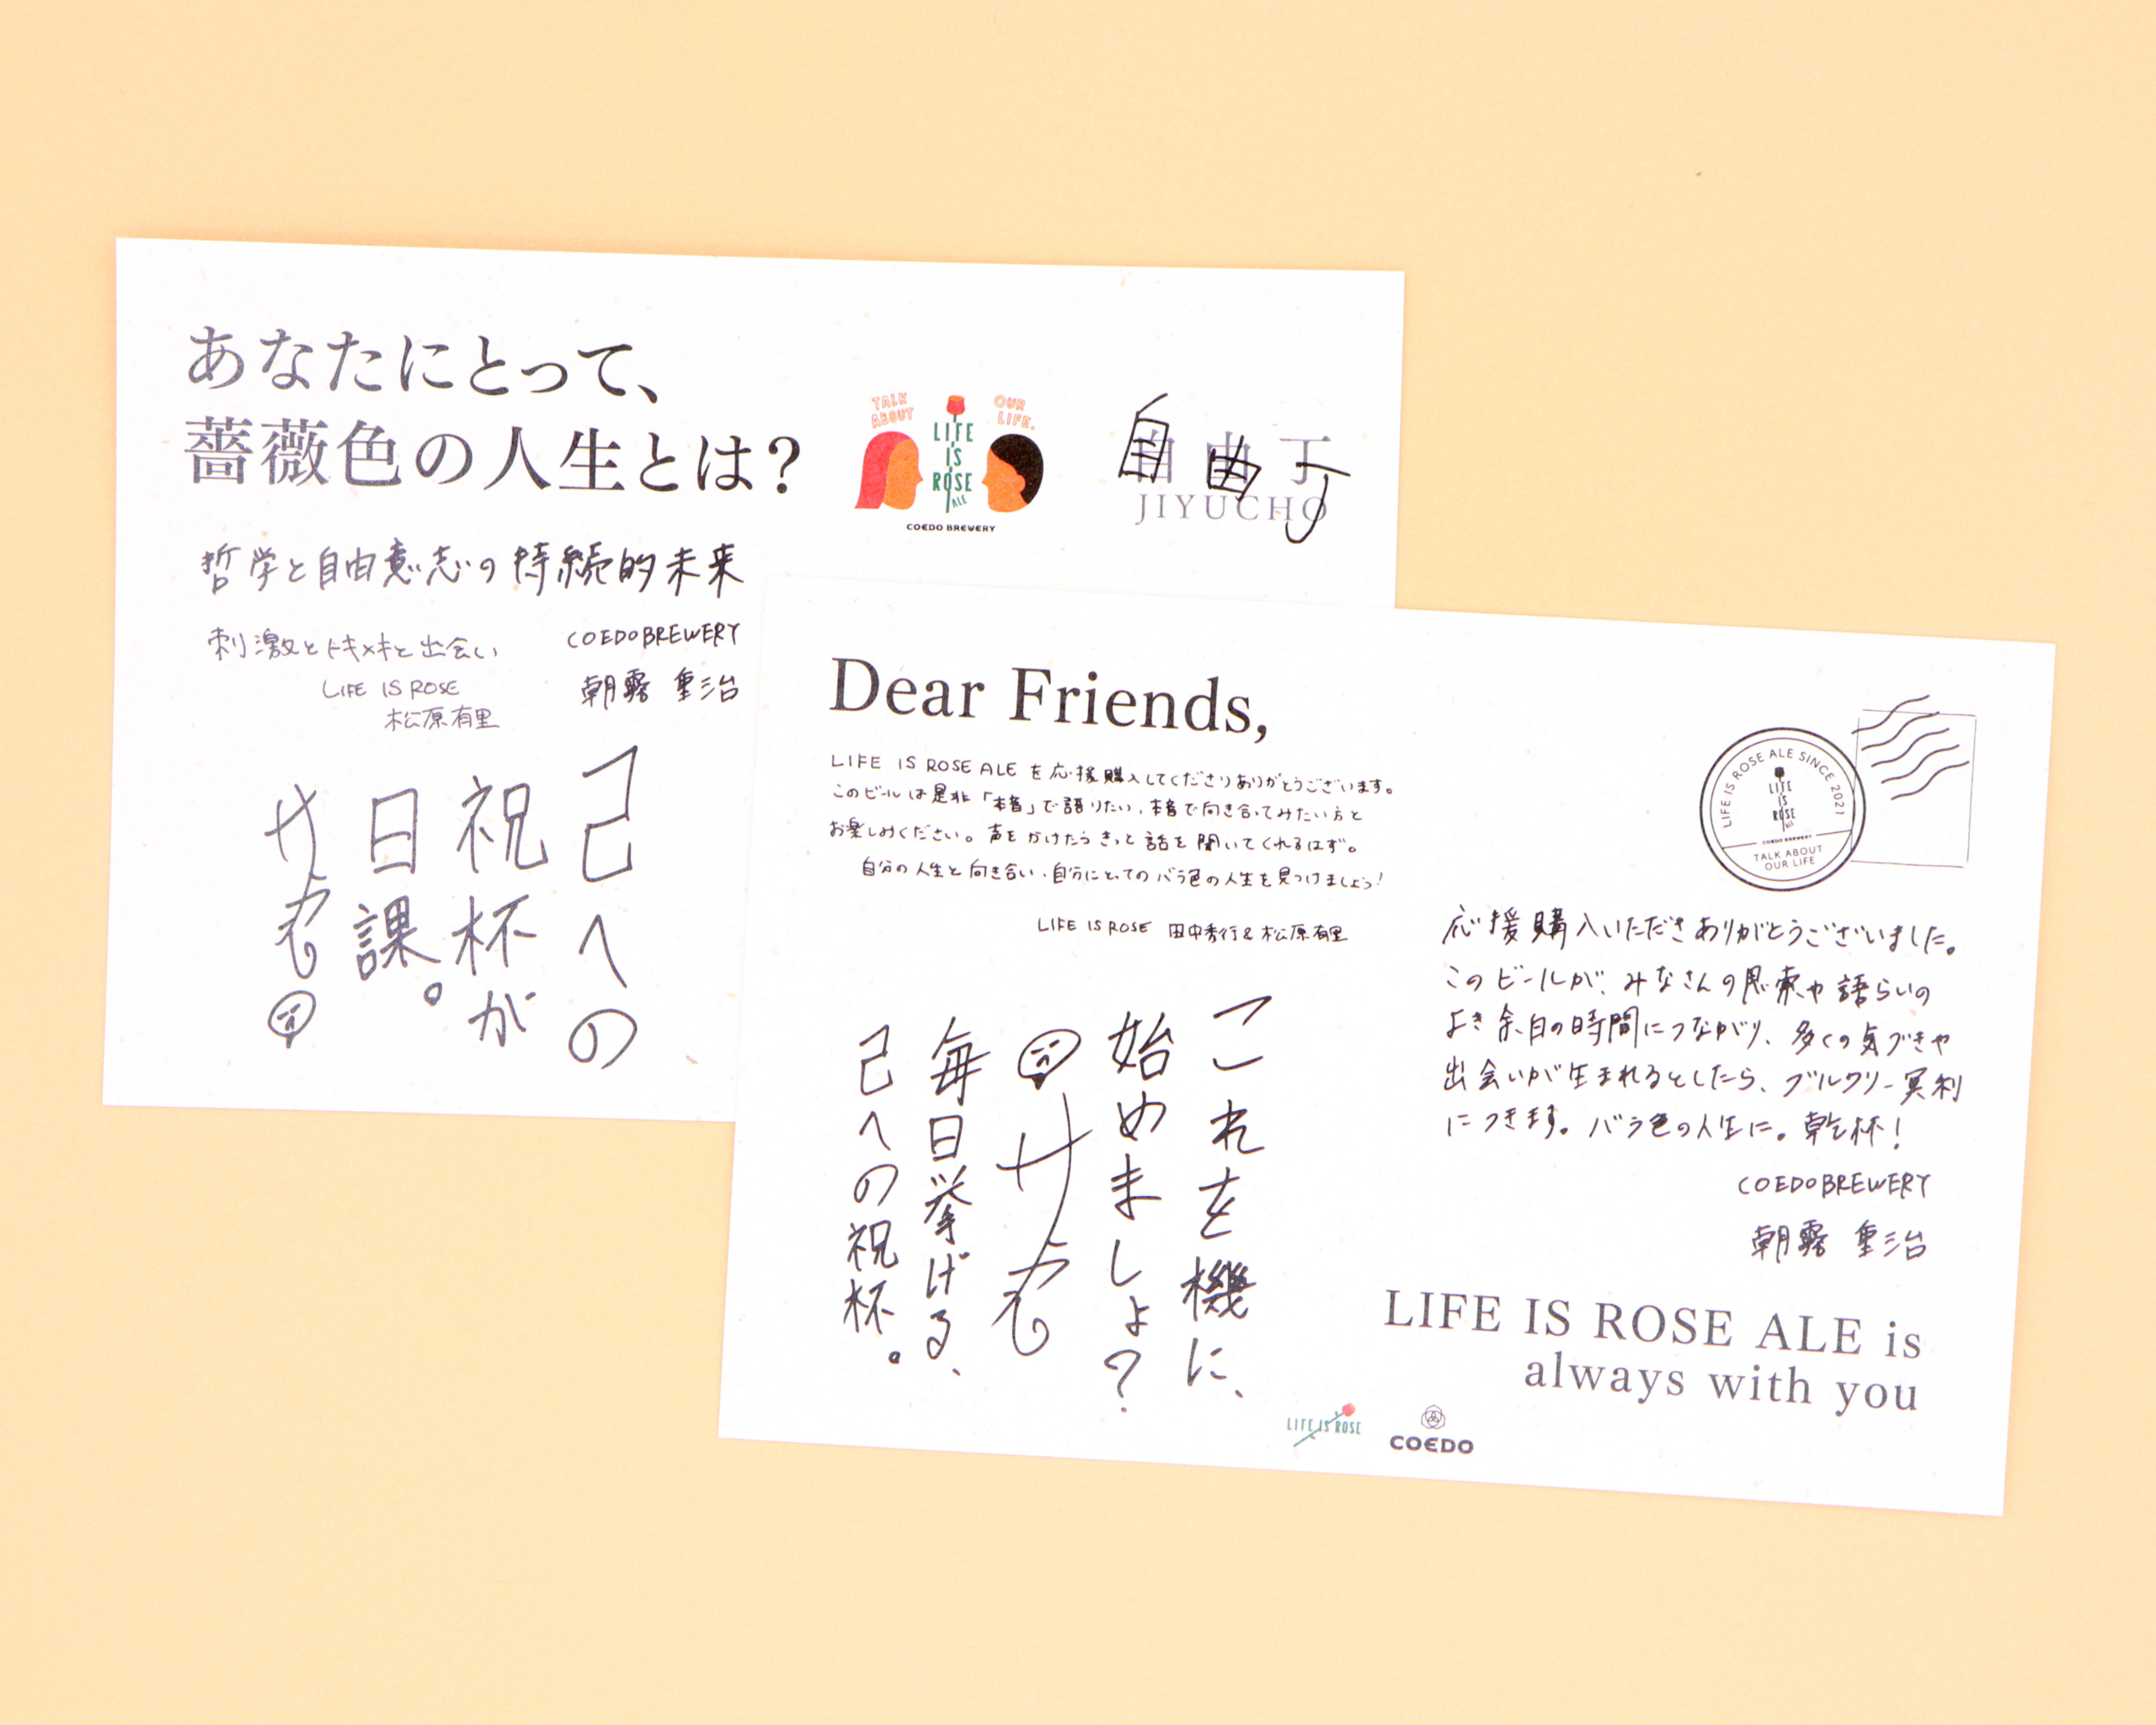 あなたにとって、
薔薇色の人生とは?
TALK
ABOUT
OUR
LIFE.
LIFE
IS
ROSE
ALE
COEDO BREWERY
自由丁
自由丁
JIYUCHO
哲学と自由意志の持続的未来
COEDOBREWERY
朝霧 重治
刺激とトキメキと出会い
LIFE IS ROSE
松原有里
己への
祝杯が
日課。
Dear Friends,
LIFE IS ROSE ALE を応援購入してくださりありがとうございます。
このビールは是非「本音」で語りたい、本音で向き合ってみたい方と
お楽しみください。声をかけたらきっと話を聞いてくれるはず。
自分の人生と向き合い、自分にとってのバラ色の人生を見つけましょう!
LIFE IS ROSE 田中秀行&松原有里
これを機に、
始めましょ?
毎日挙げる、
己への祝杯。
LIFE IS ROSE ALE SINCE 2021
LIFE
IS
ROSE
ALE
COEDO BREWERY
TALK ABOUT
OUR LIFE
応援購入いただきありがとうございました。
このビールが、みなさんの思索や語らいの
よき余白の時間につながり、多くの気づきや
出会いが生まれるとしたら、ブルワリー冥利
につきます。バラ色の人生に。乾杯!
COEDOBREWERY
朝霧 重治
LIFE IS ROSE ALE is
always with you
LIFE IS ROSE
COEDO